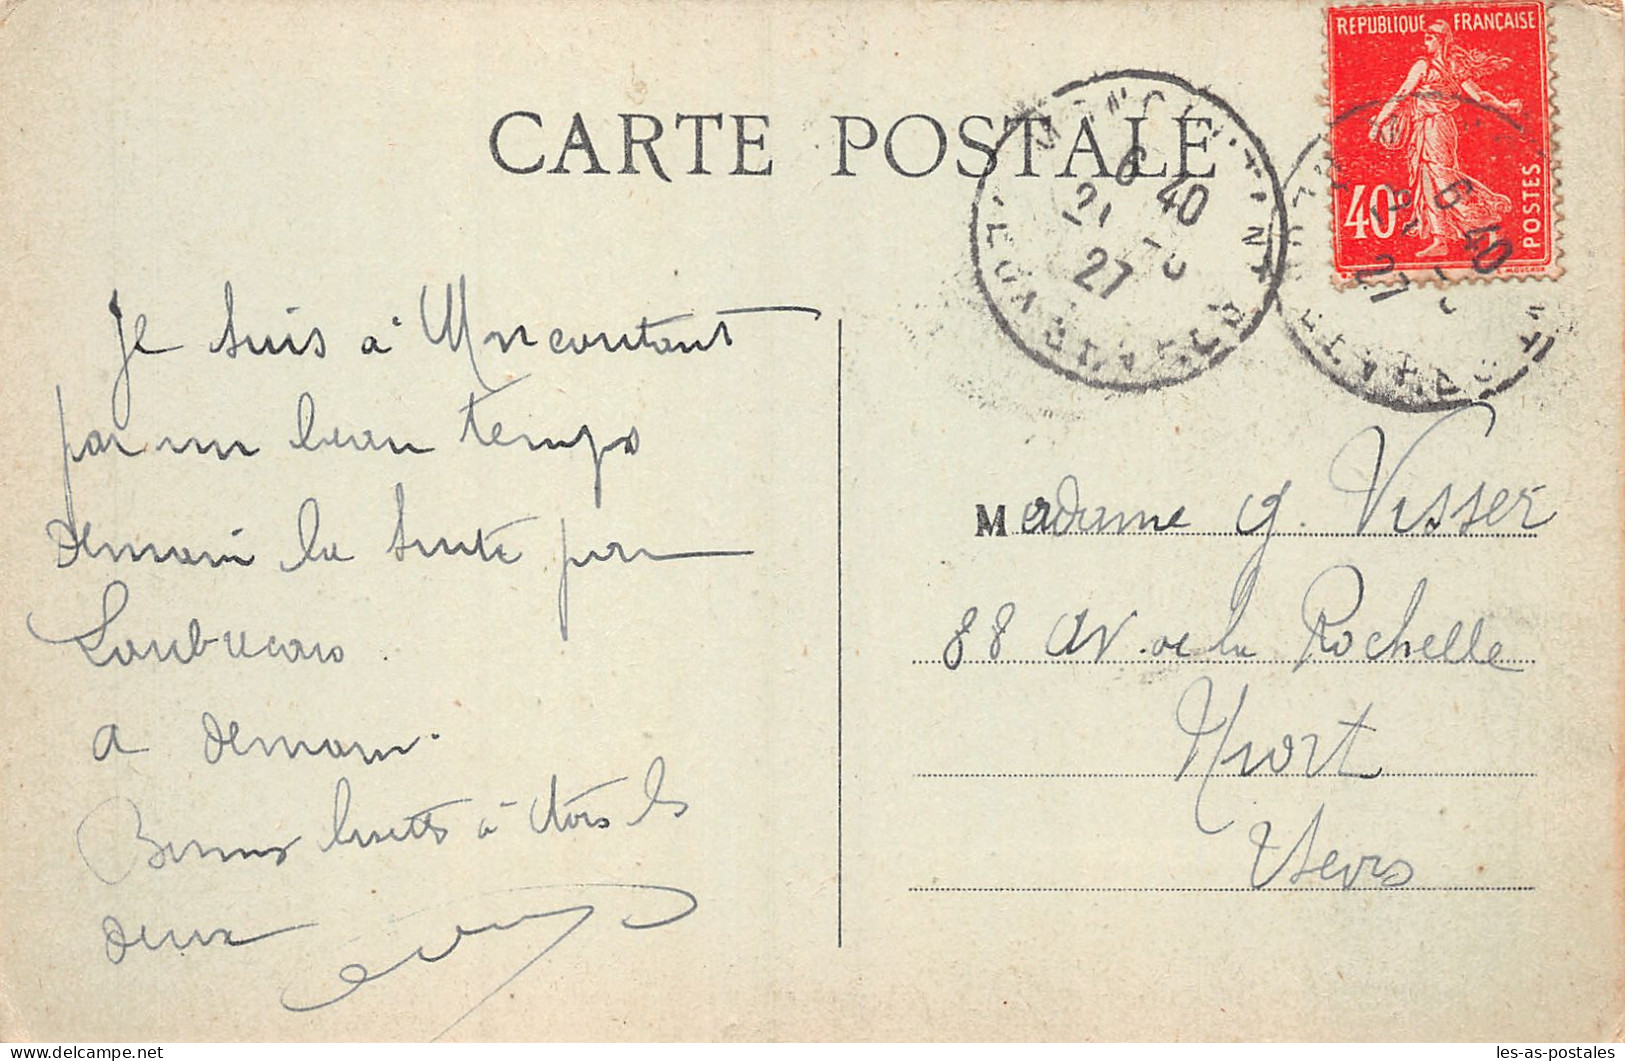 CARTE POSTALE
REPUBLIQUE FRANÇAISE
40c
POSTES
6 40
21
27
Je suis à Moncoutant
par un beau temps
demain la suite pour

a demain.
Bonnes à tous les
deux
Madame G. Visser
88 Av. de la Rochelle
Niort
2 Sevres
Delcampe.net
les-as-postales